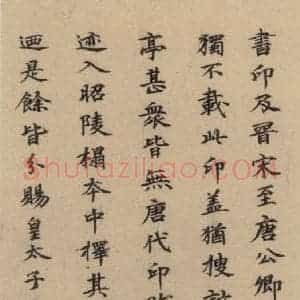 書印及晉宋至唐公卿
獨不載此印盖猶搜訪
亭甚衆皆無唐代印
迹入昭陵榻本中擇其
迺是餘皆分賜皇太子
Shufaziliao.com